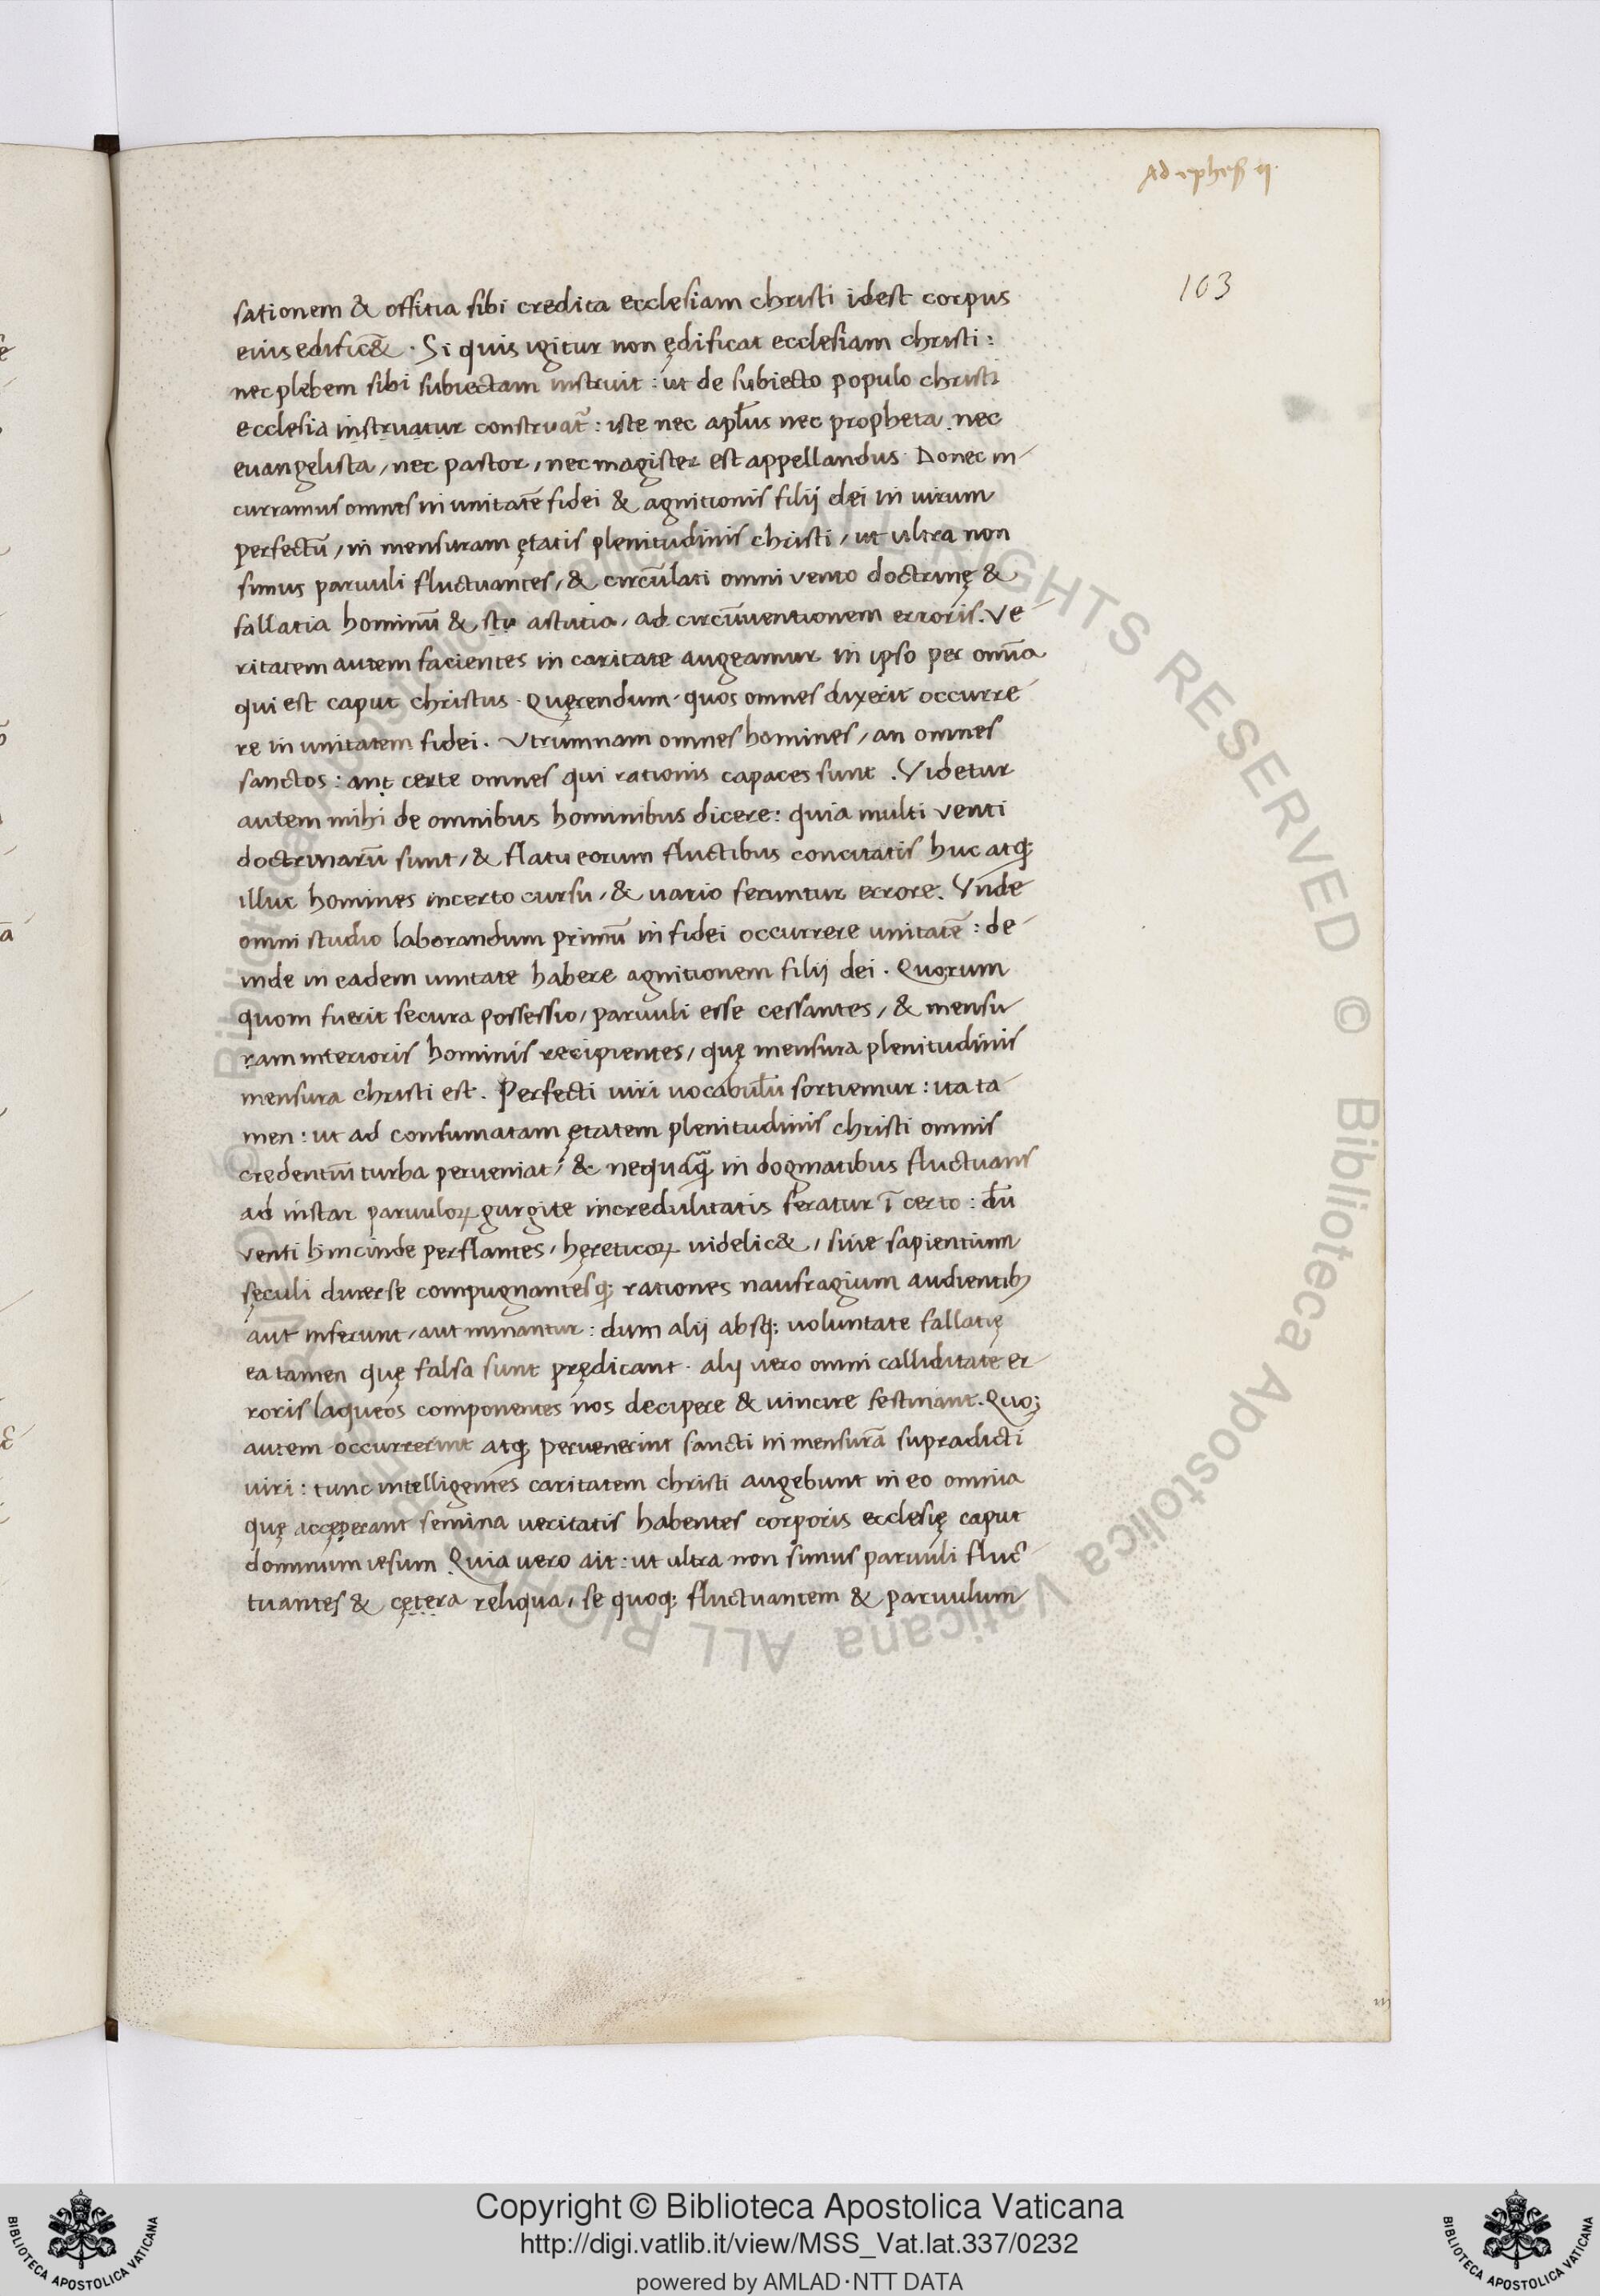 Ad ephes ij.
103
sationem & offitia sibi credita ecclesiam christi idest corpus
eius edific&. Si quis igitur non ędificat ecclesiam christi:
nec plebem sibi subiectam instruit: ut de subiecto populo christi
ecclesia instruatur construat̃: iste nec apl̃us nec propheta nec
euangelista, nec pastor, nec magister est appellandus. Donec in-
curramus omnes in unitatẽ fidei & agnitionis filij dei in uirum
perfectũ, in mensuram ętatis plenitudinis christi, ut ultra non
simus paruuli fluctuantes, & circũlati omni vento doctrinę &
fallatia hominũ & stu astutia, ad circũuentionem erroris. Ve-
ritatem autem facientes in caritate augeamur in ipso per om̃ia
qui est caput christus. Quęrendum quos omnes dixerit occurre-
re in unitatem fidei. Vtrumnam omnes homines, an omnes
sanctos: ant certe omnes qui rationis capaces sunt. Videtur
autem mihi de omnibus hominibus dicere: quia multi venti
doctrinarũ sunt, & flatu eorum fluctibus concitatis huc atq;
illuc homines incerto cursu, & uario feruntur errore. Vnde
omni studio laborandum primũ in fidei occurrere unitatẽ: de-
inde in eadem unitate habere agnitionem filij dei. Quorum
quom fuerit secura possessio, paruuli esse cessantes, & mensu
ram interioris hominis recipientes, quę mensura plenitudinis
mensura christi est. Perfecti uiri uocabulũ sortiemur: ita ta-
men: ut ad consumatam ętatem plenitudinis christi omnis
credentiũ turba perueniat, & nequaq̃ in dogmatibus fluctuans
ad instar paruuloꝝ gurgite incredulitatis feratur ĩ certo: dũ
venti hincinde perflantes, hęreticoꝝ uidelic&, siue sapientium
sęculi diuerse compugnantesq; rationes naufragium audientibꝫ
aut inferunt, aut minantur: dum alij absq; uoluntate fallatię
ea tamen quę falsa sunt prędicant. alij uero omni calliditate er-
roris laqueos componentes nos decipere & uincire festinant. Quo;
autem occurrerint atq; peruenerint sancti in mensurã supradicti
uiri: tunc intelligentes caritatem christi augebunt in eo omnia
quę accęperant semina ueritatis habentes corporis ecclesię caput
dominum iesum. Quia uero ait: ut ultra non simus paruuli fluc-
tuantes & cętera reliqua, se quoq; fluctuantem & paruulum
© Biblioteca Apostolica Vaticana ALL RIGHTS RESERVED
Copyright © Biblioteca Apostolica Vaticana
http://digi.vatlib.it/view/MSS_Vat.lat.337/0232
powered by AMLAD·NTT DATA
BIBLIOTECA APOSTOLICA VATICANA
BIBLIOTECA APOSTOLICA VATICANA